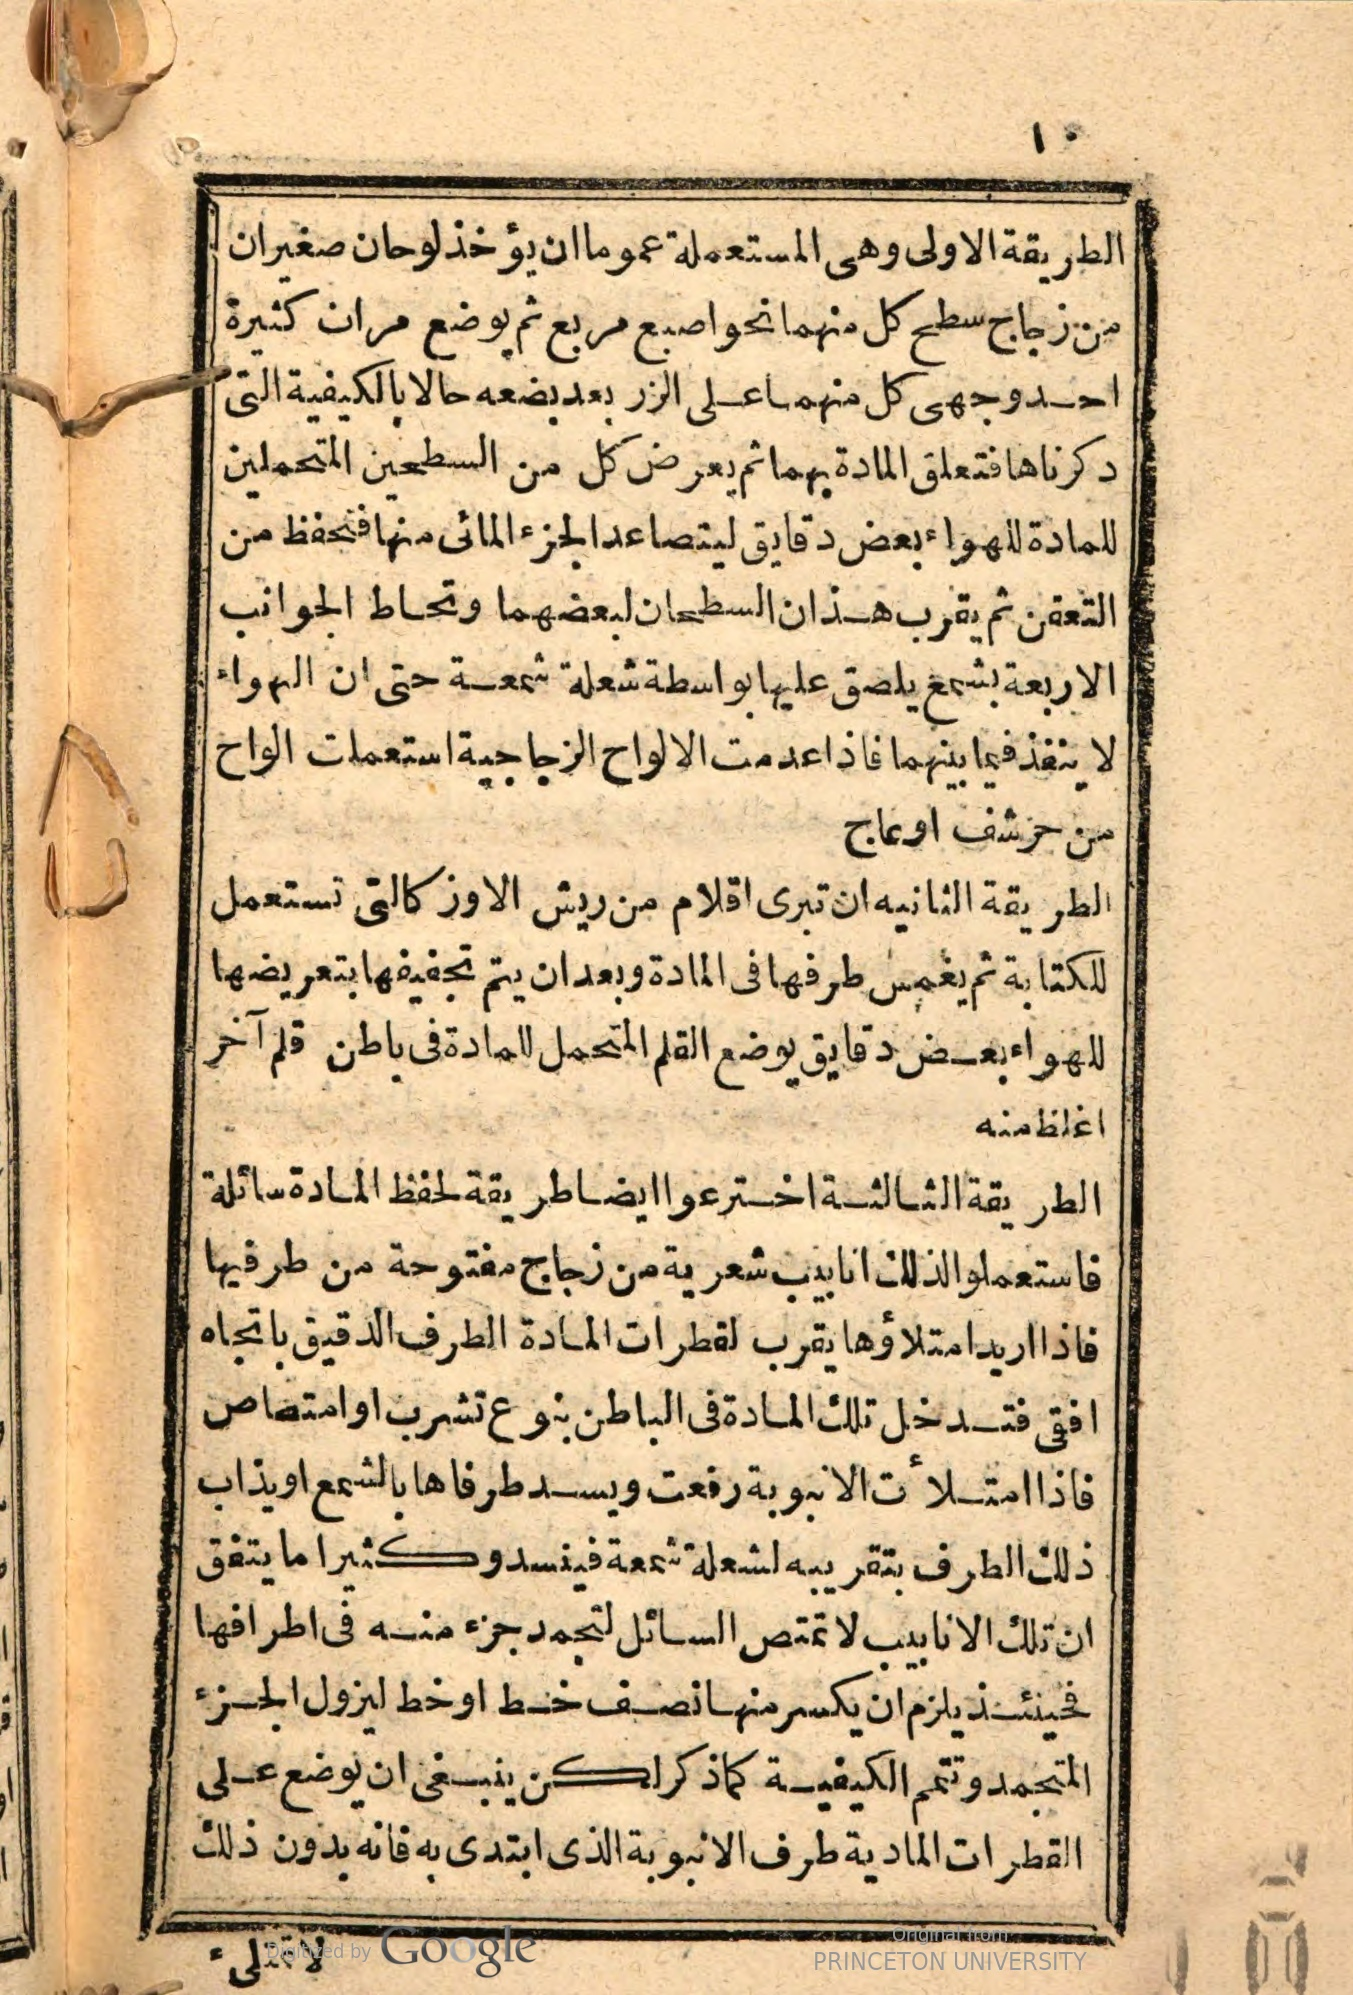 ١٠
الطريقة الاولى وهى المستعملة عموما ان يؤخذ لوحان صغيران
من زجاج سطح كل منهما نحو اصبع مربع ثم يوضع مران كثيرة
احد وجهى كل منهما على الزر بعد بضعه حالا بالكيفية التى
دكرناها فتعلق المادة بهما ثم يعرض كل من السطحين المتحملين
للمادة للهواء بعض دقايق ليتصاعد الجزء المائى منها فتحفظ من
التعفن ثم يقرب هذان السطحان لبعضهما وتحاط الجوانب
الاربعة بشمع يلصق عليها بواسطة شعلة شمعة حتى ان الهواء
لا ينفذ فيما بينهما فاذا عدمت الالواح الزجاجية استعملت الواح
من حرشف او عاج
الطريقة الثانيه ان تبرى اقلام من ريش الاوز كالتى تستعمل
للكتابة ثم يغمس طرفها فى المادة وبعد ان يتم تجفيفها بتعريضها
للهواء بعض دقايق يوضع القلم المتحمل للمادة فى باطن قلم آخر
اغلظ منه
الطريقة الثالثة اخترعوا ايضا طريقة لحفظ المادة سائلة
فاستعملوا لذلك انابيب شعرية من زجاج مفتوحة من طرفيها
فاذا اريد امتلاؤها يقرب لقطرات المادة الطرف الدقيق باتجاه
افقى فتدخل تلك المادة فى الباطن بنوع تشرب او امتصاص
فاذا امتلأت الانبوبة رفعت ويسد طرفاها بالشمع او يذاب
ذلك الطرف بتقريبه لشعلة شمعة فينسد وكثيرا ما يتفق
ان تلك الانابيب لا تمتص السائل لتجمد جزء منه فى اطرافها
فحينئذ يلزم ان يكسر منها نصف خط او خط ليزول الجزء
المتجمد وتتمم الكيفية كما ذكر لكن ينبغى ان يوضع على
القطرات المادية طرف الانبوبة الذى ابتدى به فانه بدون ذلك
لا تمتلىء
Digitized by Google
Original from
PRINCETON UNIVERSITY